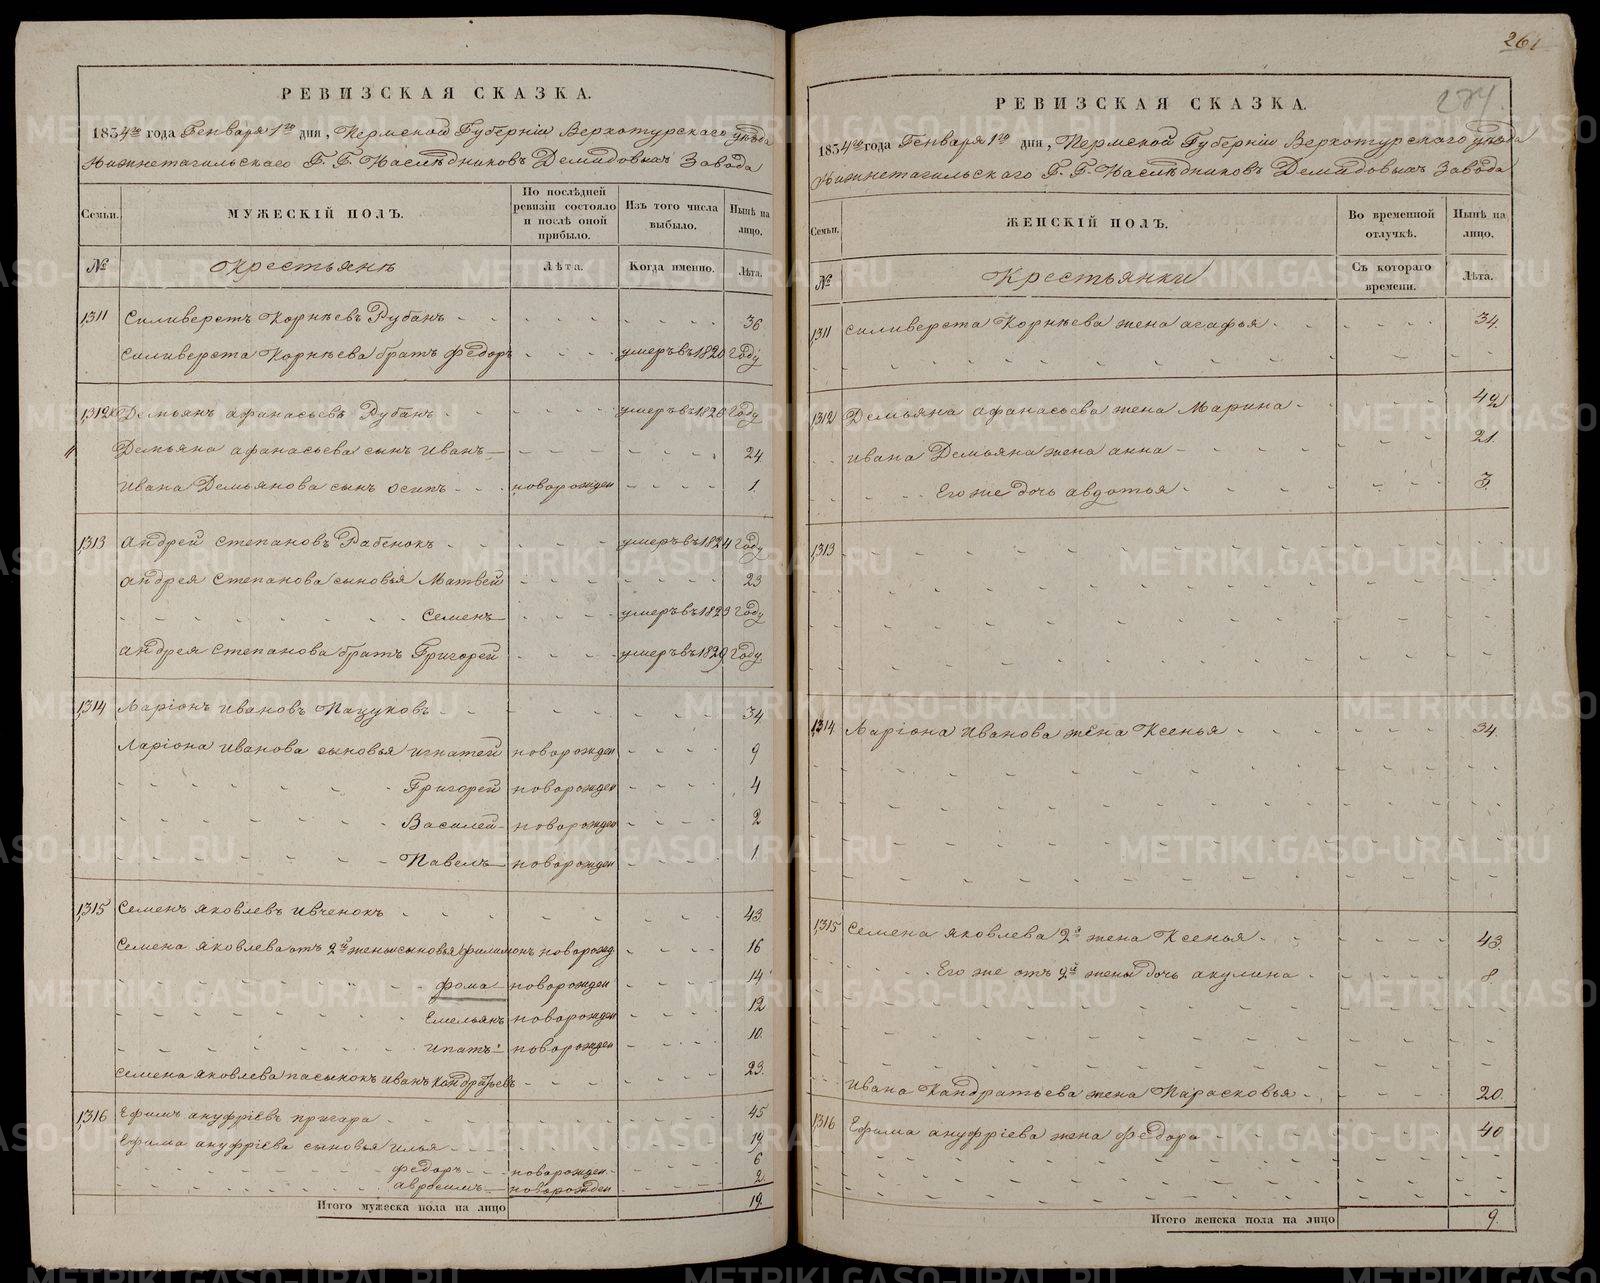 РЕВИЗСКАЯ СКАЗКА.
1834го года Генваря 1го дня, Пермской Губерніи Верхотурскаго уѣзда
Нижнетагильскаго Г. Г. Наслѣдниковъ Демидовыхъ Завода
Семьи.
МУЖЕСКІЙ ПОЛЪ.
По послѣдней ревизіи состояло и послѣ оной прибыло.
Изъ того числа выбыло.
Нынѣ на лицо.
№ Крестьянъ Лѣта. Когда именно. Лѣта.
1311 Силиверстъ Корнѣевъ Рубанъ 36
Силиверста Корнѣева братъ Федоръ умеръ въ 1820 Году
1312 Демьянъ афанасьевъ Рубанъ умеръ въ 1826 Году
Демьяна афанасьева сынъ Иванъ 24
Ивана Демьянова сынъ Осипъ новорожден 1.
1313 Андрей Степановъ Рабенокъ умеръ въ 1824 Году
Андрея Степанова сыновья Матвей 23
Семенъ умеръ въ 1823 Году
Андрея Степанова братъ Григорей умеръ въ 1829 Году
1314 Ларіонъ Ивановъ Пацуковъ 34
Ларіона Иванова сыновья Игнатей новорожден 9
Григорей новорожден 4
Василей новорожден 2
Павелъ новорожден 1
1315 Семенъ яковлевъ Ивченокъ 43
Семена яковлева отъ 2й жены сыновья Филимонъ новорожд 16
Фома новорожден 14
Емельянъ новорожден 12
Ипатъ новорожден 10.
Семена яковлева пасынокъ Иванъ Кондратьевъ 23.
1316 Ефимъ ануфріевъ пригара 45
Ефима ануфріева сыновья илья 19
федоръ новорожден 6
авросимъ новорожден 2
Итого мужеска пола на лицо 19.
261
РЕВИЗСКАЯ СКАЗКА.
1834го года Генваря 1го дня, Пермской Губерніи Верхотурскаго уѣзда
Нижнетагильскаго Г. Г. Наслѣдниковъ Демидовыхъ Завода
Семьи.
ЖЕНСКІЙ ПОЛЪ.
Во временной отлучкѣ.
Нынѣ на лицо.
№ Крестьянки Съ котораго времени. Лѣта.
1311 Силиверста Корнѣева жена агафья 34.
1312 Демьяна афанасьева жена Марина 42
Ивана Демьяна жена анна 21.
Его же дочь авдотья 3.
1313
1314 Ларіона Иванова жена Ксенья 34.
1315 Семена яковлева 2я жена Ксенья 43.
Его же отъ 2й жены дочь акулина 8
Ивана Кандратьева жена Парасковья 20.
1316 Ефима ануфріева жена федора 40
Итого женска пола на лицо 9.
METRIKI.GASO-URAL.RU